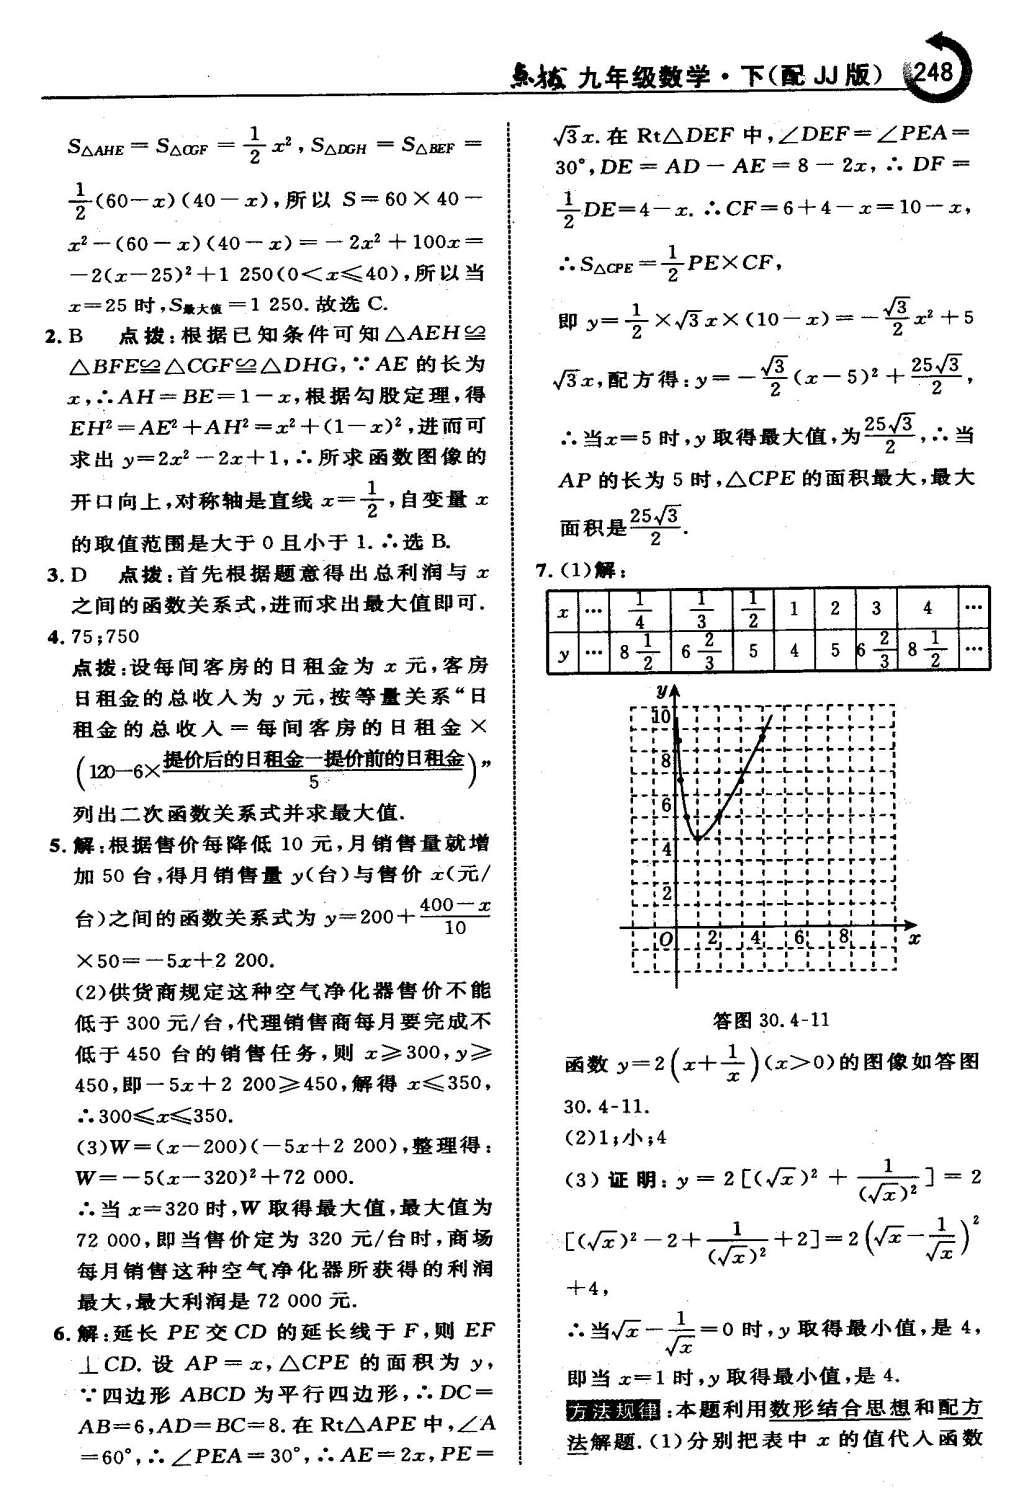 点拨 九年级数学·下(配 JJ 版) 248
S△AHE = S△CGF = 1/2 x², S△DGH = S△BEF =
1/2(60-x)(40-x),所以 S=60×40-
x²-(60-x)(40-x)=-2x²+100x=
-2(x-25)²+1 250(0<x≤40),所以当
x=25 时,S最大值=1 250. 故选 C.
2. B 点拨:根据已知条件可知△AEH≌
△BFE≌△CGF≌△DHG,∵AE 的长为
x,∴AH=BE=1-x,根据勾股定理,得
EH²=AE²+AH²=x²+(1-x)²,进而可
求出 y=2x²-2x+1,∴所求函数图像的
开口向上,对称轴是直线 x=1/2,自变量 x
的取值范围是大于 0 且小于 1.∴选 B.
3. D 点拨:首先根据题意得出总利润与 x
之间的函数关系式,进而求出最大值即可.
4. 75;750
点拨:设每间客房的日租金为 x 元,客房
日租金的总收入为 y 元,按等量关系“日
租金的总收入=每间客房的日租金×
(120-6×提价后的日租金-提价前的日租金/5)”
列出二次函数关系式并求最大值.
5. 解:根据售价每降低 10 元,月销售量就增
加 50 台,得月销售量 y(台)与售价 x(元/
台)之间的函数关系式为 y=200+(400-x)/10
×50=-5x+2 200.
(2)供货商规定这种空气净化器售价不能
低于 300 元/台,代理销售商每月要完成不
低于 450 台的销售任务,则 x≥300,y≥
450,即-5x+2 200≥450,解得 x≤350,
∴300≤x≤350.
(3)W=(x-200)(-5x+2 200),整理得:
W=-5(x-320)²+72 000.
∴当 x=320 时,W 取得最大值,最大值为
72 000,即当售价定为 320 元/台时,商场
每月销售这种空气净化器所获得的利润
最大,最大利润是 72 000 元.
6. 解:延长 PE 交 CD 的延长线于 F,则 EF
⊥CD. 设 AP=x,△CPE 的面积为 y,
∵四边形 ABCD 为平行四边形,∴DC=
AB=6,AD=BC=8. 在 Rt△APE 中,∠A
=60°,∴∠PEA=30°,∴AE=2x,PE=
√3x. 在 Rt△DEF 中,∠DEF=∠PEA=
30°,DE=AD-AE=8-2x,∴DF=
1/2DE=4-x.∴CF=6+4-x=10-x,
∴S△CPE=1/2PE×CF,
即 y=1/2×√3x×(10-x)=-√3/2x²+5
√3x,配方得:y=-√3/2(x-5)²+25√3/2,
∴当x=5 时,y 取得最大值,为25√3/2,∴当
AP 的长为 5 时,△CPE 的面积最大,最大
面积是25√3/2.
7. (1)解:
x … 1/4 1/3 1/2 1 2 3 4 …
y … 8 1/2 6 2/3 5 4 5 6 2/3 8 1/2 …
y
10
8
6
4
2
O 2 4 6 8 x
答图 30.4-11
函数 y=2(x+1/x)(x>0)的图像如答图
30.4-11.
(2)1;小;4
(3)证明:y=2[(√x)²+1/(√x)²]=2
[(√x)²-2+1/(√x)²+2]=2(√x-1/√x)²
+4,
∴当√x-1/√x=0 时,y 取得最小值,是 4,
即当 x=1 时,y 取得最小值,是 4.
方法规律:本题利用数形结合思想和配方
法解题.(1)分别把表中 x 的值代入函数